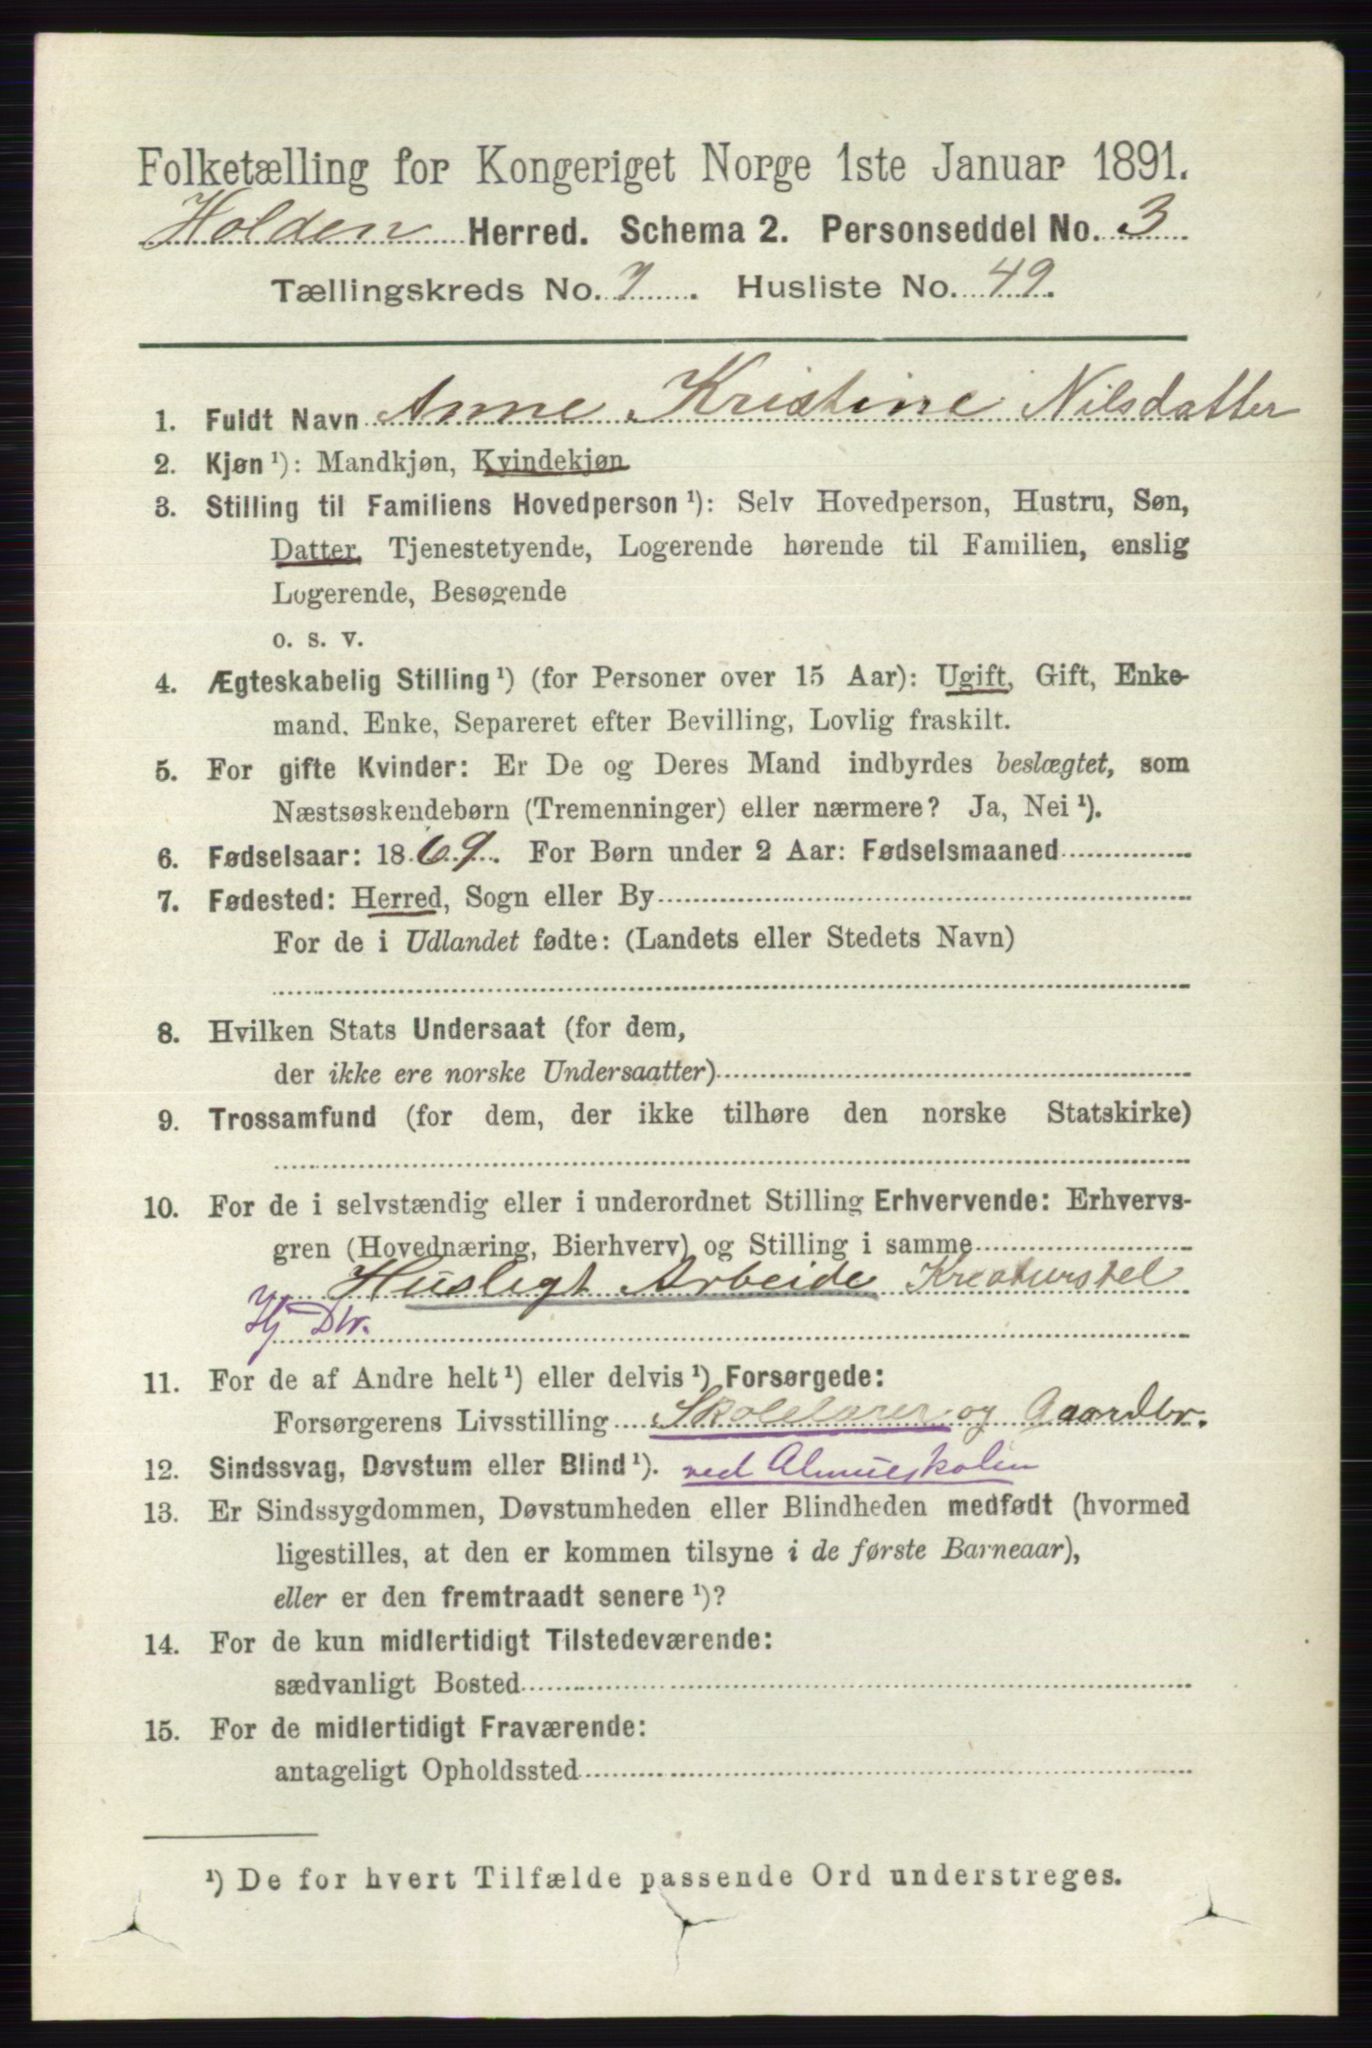 Folketælling for Kongeriget Norge 1ste Januar 1891.
Holden Herred. Schema 2. Personseddel No. 3
Tællingskreds No. 7. Husliste No. 49.
1. Fuldt Navn Anne Kristine Nilsdatter
2. Kjøn ¹): Mandkjøn, Kvindekjøn
3. Stilling til Familiens Hovedperson ¹): Selv Hovedperson, Hustru, Søn,
Datter, Tjenestetyende, Logerende hørende til Familien, enslig
Logerende, Besøgende
o. s. v.
4. Ægteskabelig Stilling ¹) (for Personer over 15 Aar): Ugift, Gift, Enke-
mand, Enke, Separeret efter Bevilling, Lovlig fraskilt.
5. For gifte Kvinder: Er De og Deres Mand indbyrdes beslægtet, som
Næstsøskendebørn (Tremenninger) eller nærmere? Ja, Nei ¹).
6. Fødselsaar: 1869. For Børn under 2 Aar: Fødselsmaaned
7. Fødested: Herred, Sogn eller By
For de i Udlandet fødte: (Landets eller Stedets Navn)
8. Hvilken Stats Undersaat (for dem,
der ikke ere norske Undersaatter)
9. Trossamfund (for dem, der ikke tilhøre den norske Statskirke)
10. For de i selvstændig eller i underordnet Stilling Erhvervende: Erhvervs-
gren (Hovednæring, Bierhverv) og Stilling i samme
Husligt Arbeide Kreaturstel
Hj Dtr.
11. For de af Andre helt ¹) eller delvis ¹) Forsørgede:
Forsørgerens Livsstilling Skolelærer og Gaardbr.
12. Sindssvag, Døvstum eller Blind ¹). ved Almueskolen
13. Er Sindssygdommen, Døvstumheden eller Blindheden medfødt (hvormed
ligestilles, at den er kommen tilsyne i de første Barneaar),
eller er den fremtraadt senere ¹)?
14. For de kun midlertidigt Tilstedeværende:
sædvanligt Bosted
15. For de midlertidigt Fraværende:
antageligt Opholdssted
¹) De for hvert Tilfælde passende Ord understreges.